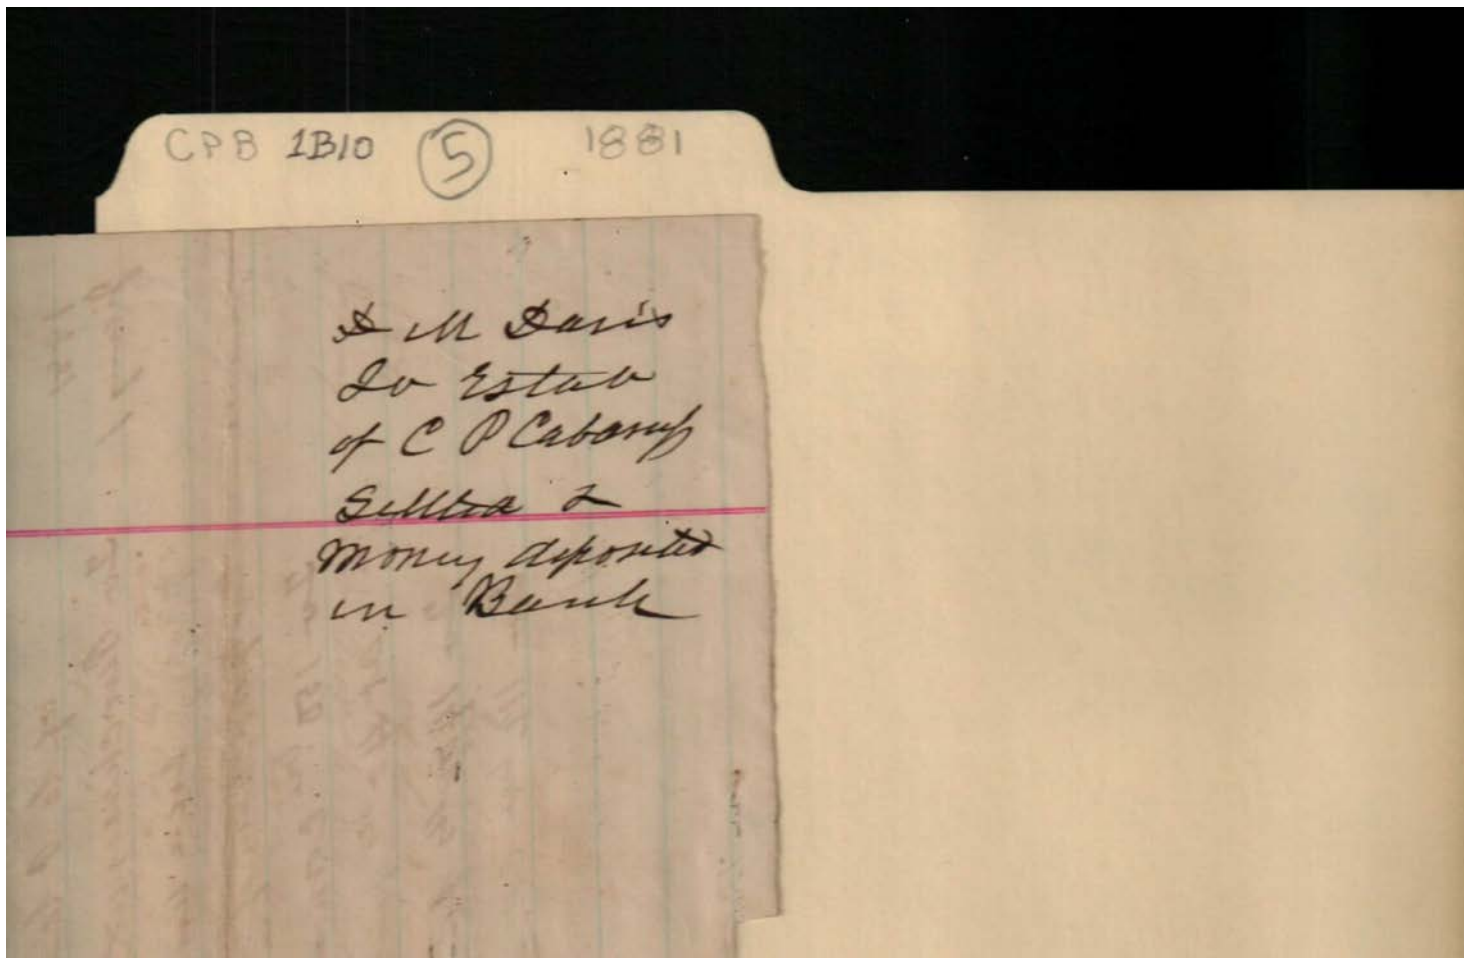 CPB 1B10 5 1881
D M Davis
To Estate
of C P Cabaniss
Settled &
money deposited
in Bank